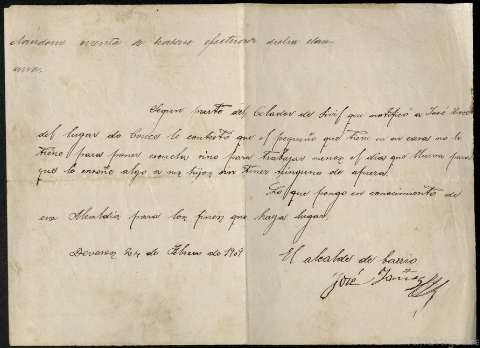 dándome cuenta de haberse efectuado dicha clau-
sura.
Según parte del Celador de Sivil que notificó a José
del lugar do Couce le contestó que el pequeño que tiene en su casa no lo
tiene para poner escuela sino para trabajar menos el dia que llueva para
que le enseñe algo a sus hijos sin tener ninguno de afuera.
Lo que pongo en conocimiento de
esa Alcaldia para los fines que haya lugar.
Devesos 24 de Febrero de 1909
El alcalde de barrio
José Yañez